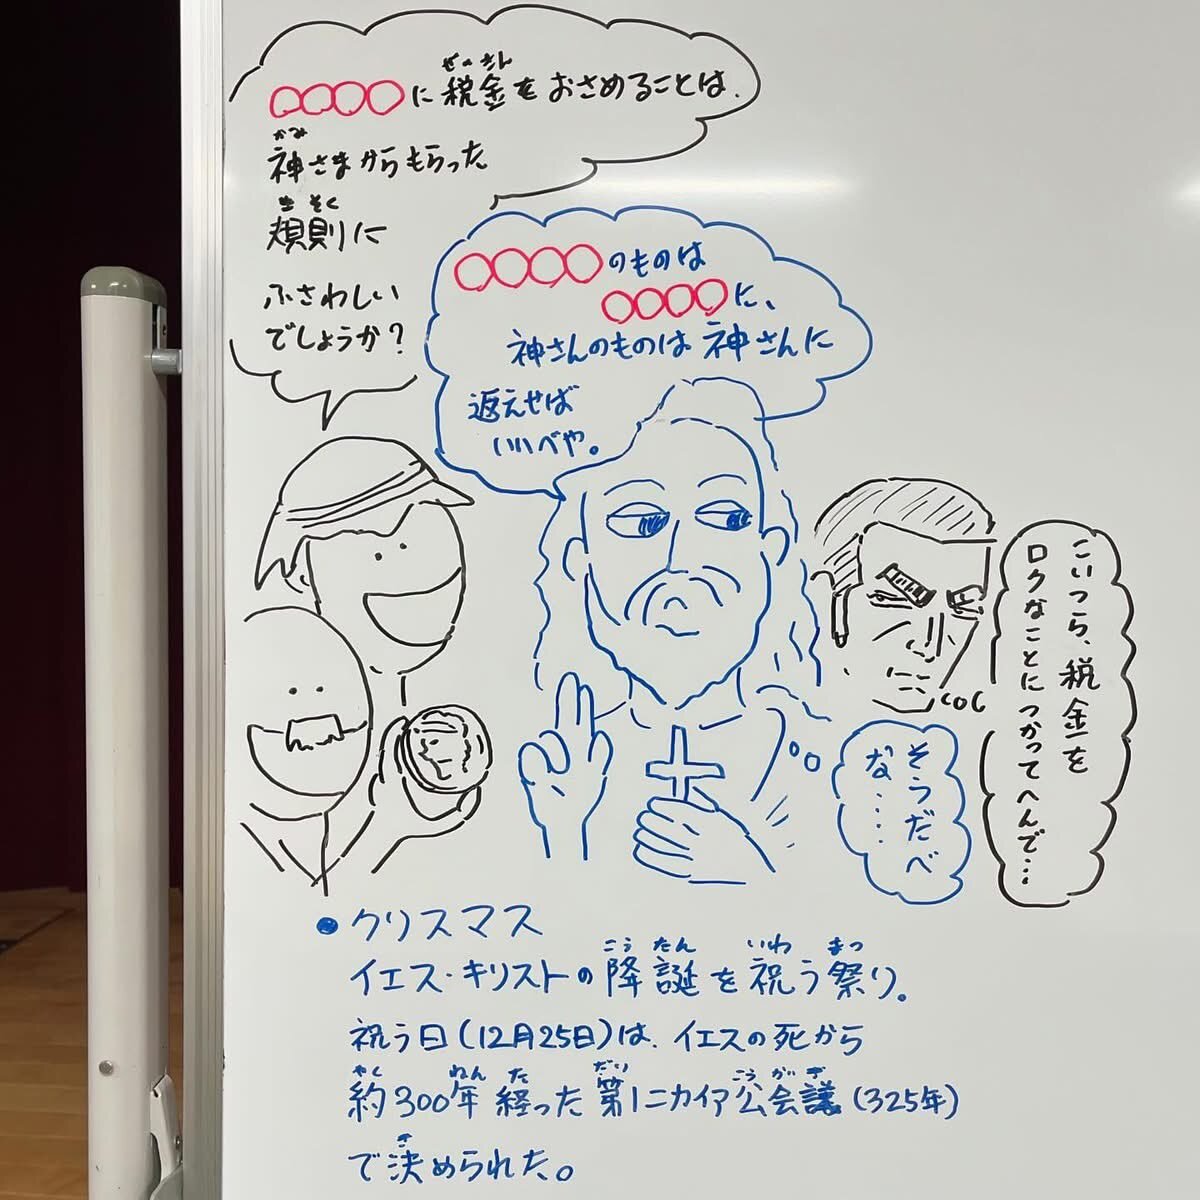 ○○○○に税金をおさめることは、
ぜいきん
神さまからもらった
かみ
規則に
きそく
ふさわしい
でしょうか?
○○○○のものは
○○○○に、
神さんのものは神さんに
返えせば
いいべや。
こいつら、税金を
ロクなことにつかってへんで…
そうだべ
な……
●クリスマス
イエス・キリストの降誕を祝う祭り。
こうたん いわ まつ
祝う日(12月25日)は、イエスの死から
約300年経った第1ニカイア公会議(325年)
やく ねん た だい こうかいぎ
で決められた。
き